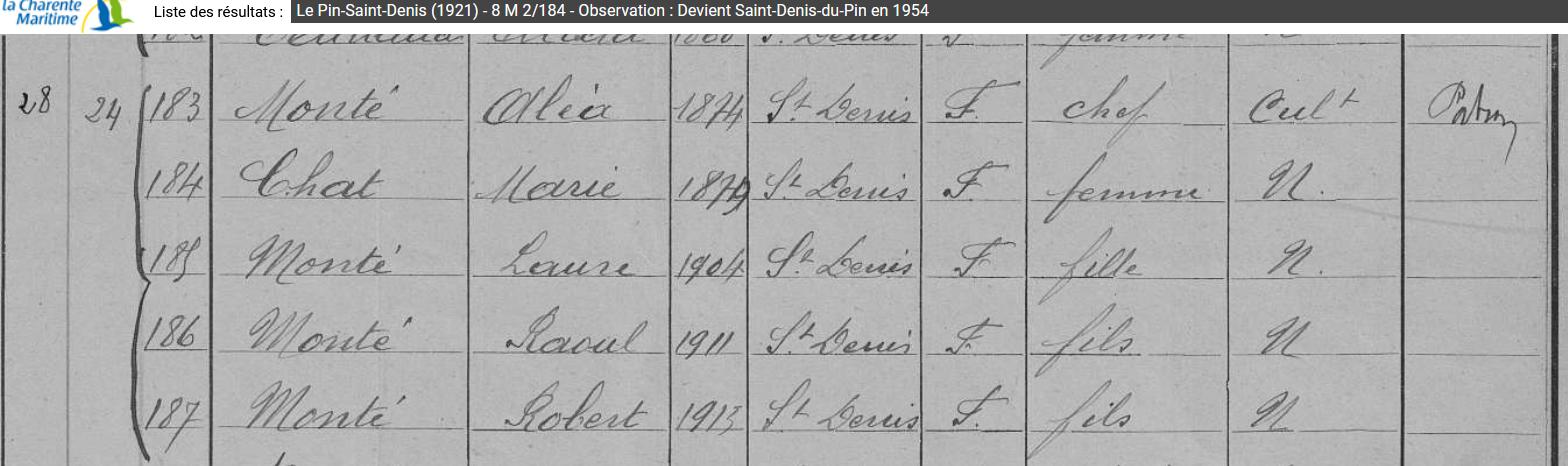 la Charente
Maritime
Liste des résultats : Le Pin-Saint-Denis (1921) - 8 M 2/184 - Observation : Devient Saint-Denis-du-Pin en 1954
28 24 183 Monté Aléa 1874 St Denis F. chef Cult Patron
184 Chat Marie 1879 St Denis F. femme N.
185 Monté Laure 1904 St Denis F. fille N.
186 Monté Raoul 1911 St Denis F. fils N
187 Monté Robert 1913 St Denis F. fils N